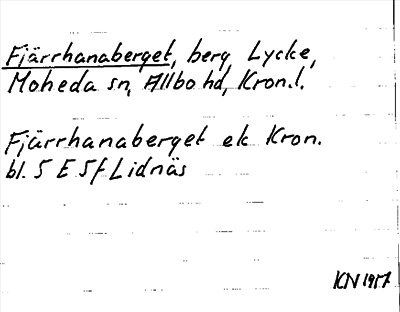 Fjärrhanaberget, berg, Lycke,
Moheda sn, Allbo hd, Kron.l.
Fjärrhanaberget ek Kron.
bl. 5 E 5f Lidnäs
KN 1957